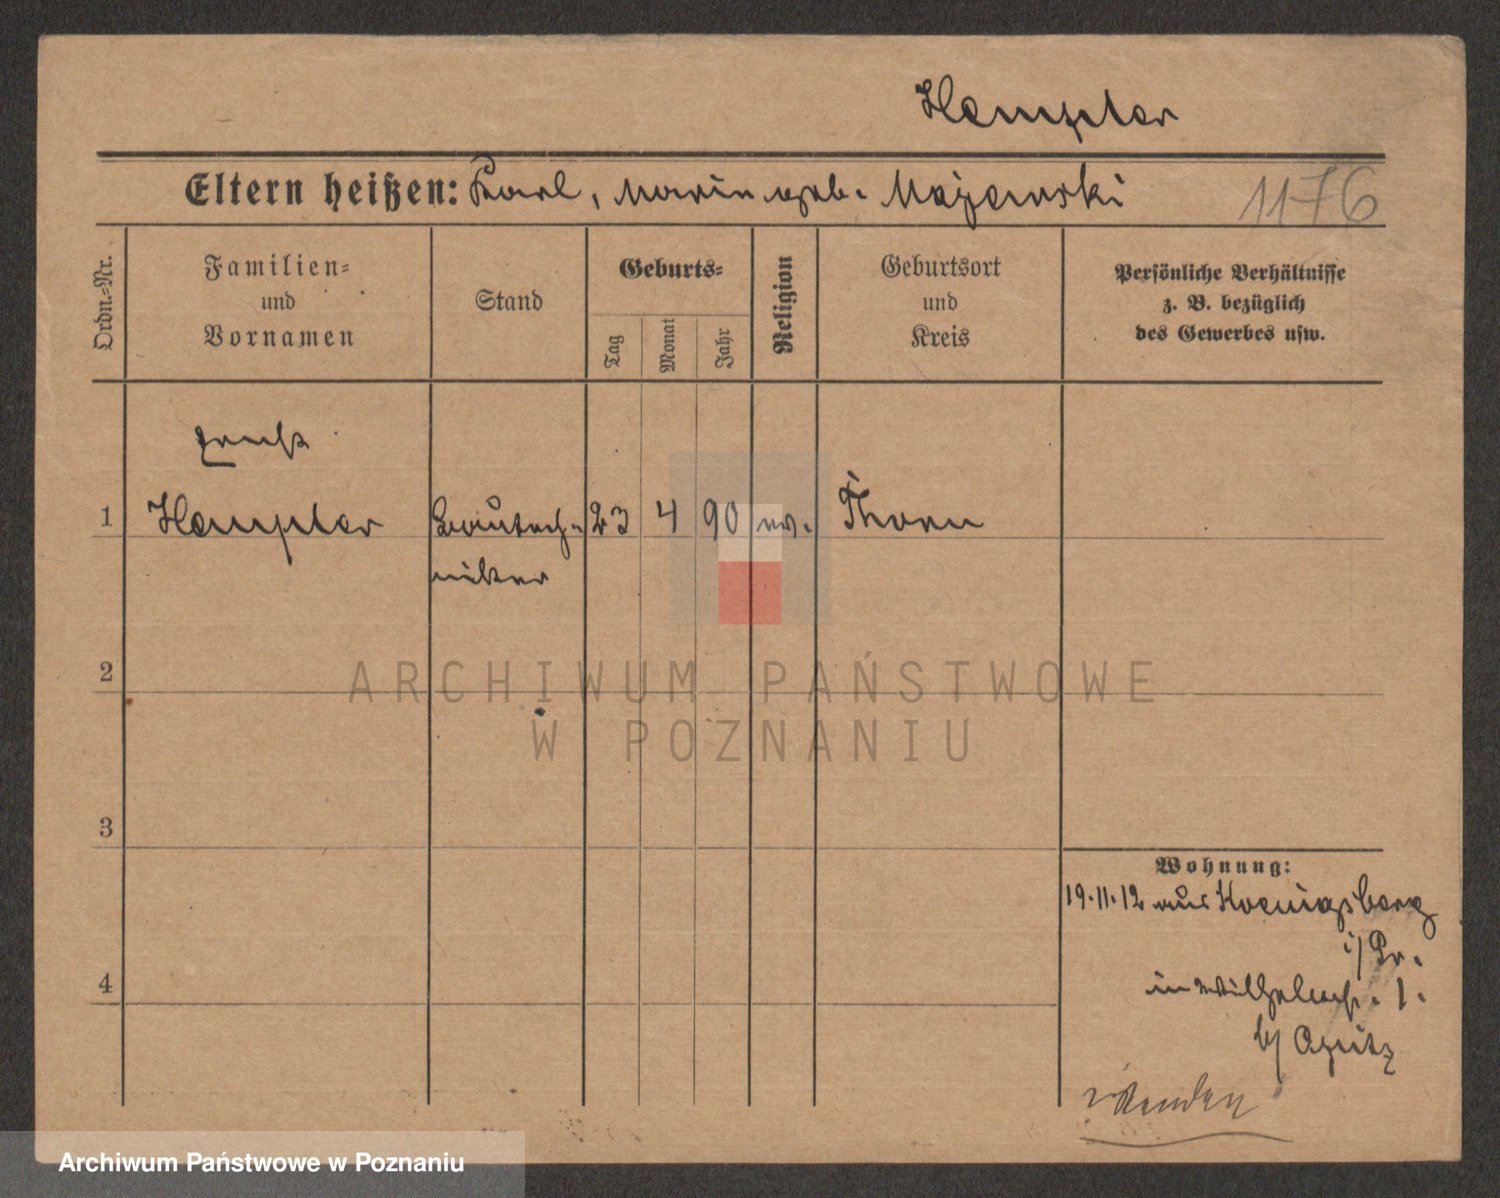 Hempler
Eltern heißen: Karl, Marie geb. Majewski
1176
Ordn.=Nr.
Familien=
und
Vornamen
Stand
Geburts=
Tag
Monat
Jahr
Religion
Geburtsort
und
Kreis
Persönliche Verhältnisse
z. B. bezüglich
des Gewerbes usw.
Ernst
1 Hempler Bautech= 23 4 90 ev. Thorn
niker
2
3
4
Wohnung:
19.11.12 aus Koenigsberg
i/Pr.
in Wilhelmst. 1.
b/ Apitz
wenden
ARCHIWUM PAŃSTWOWE
W POZNANIU
Archiwum Państwowe w Poznaniu